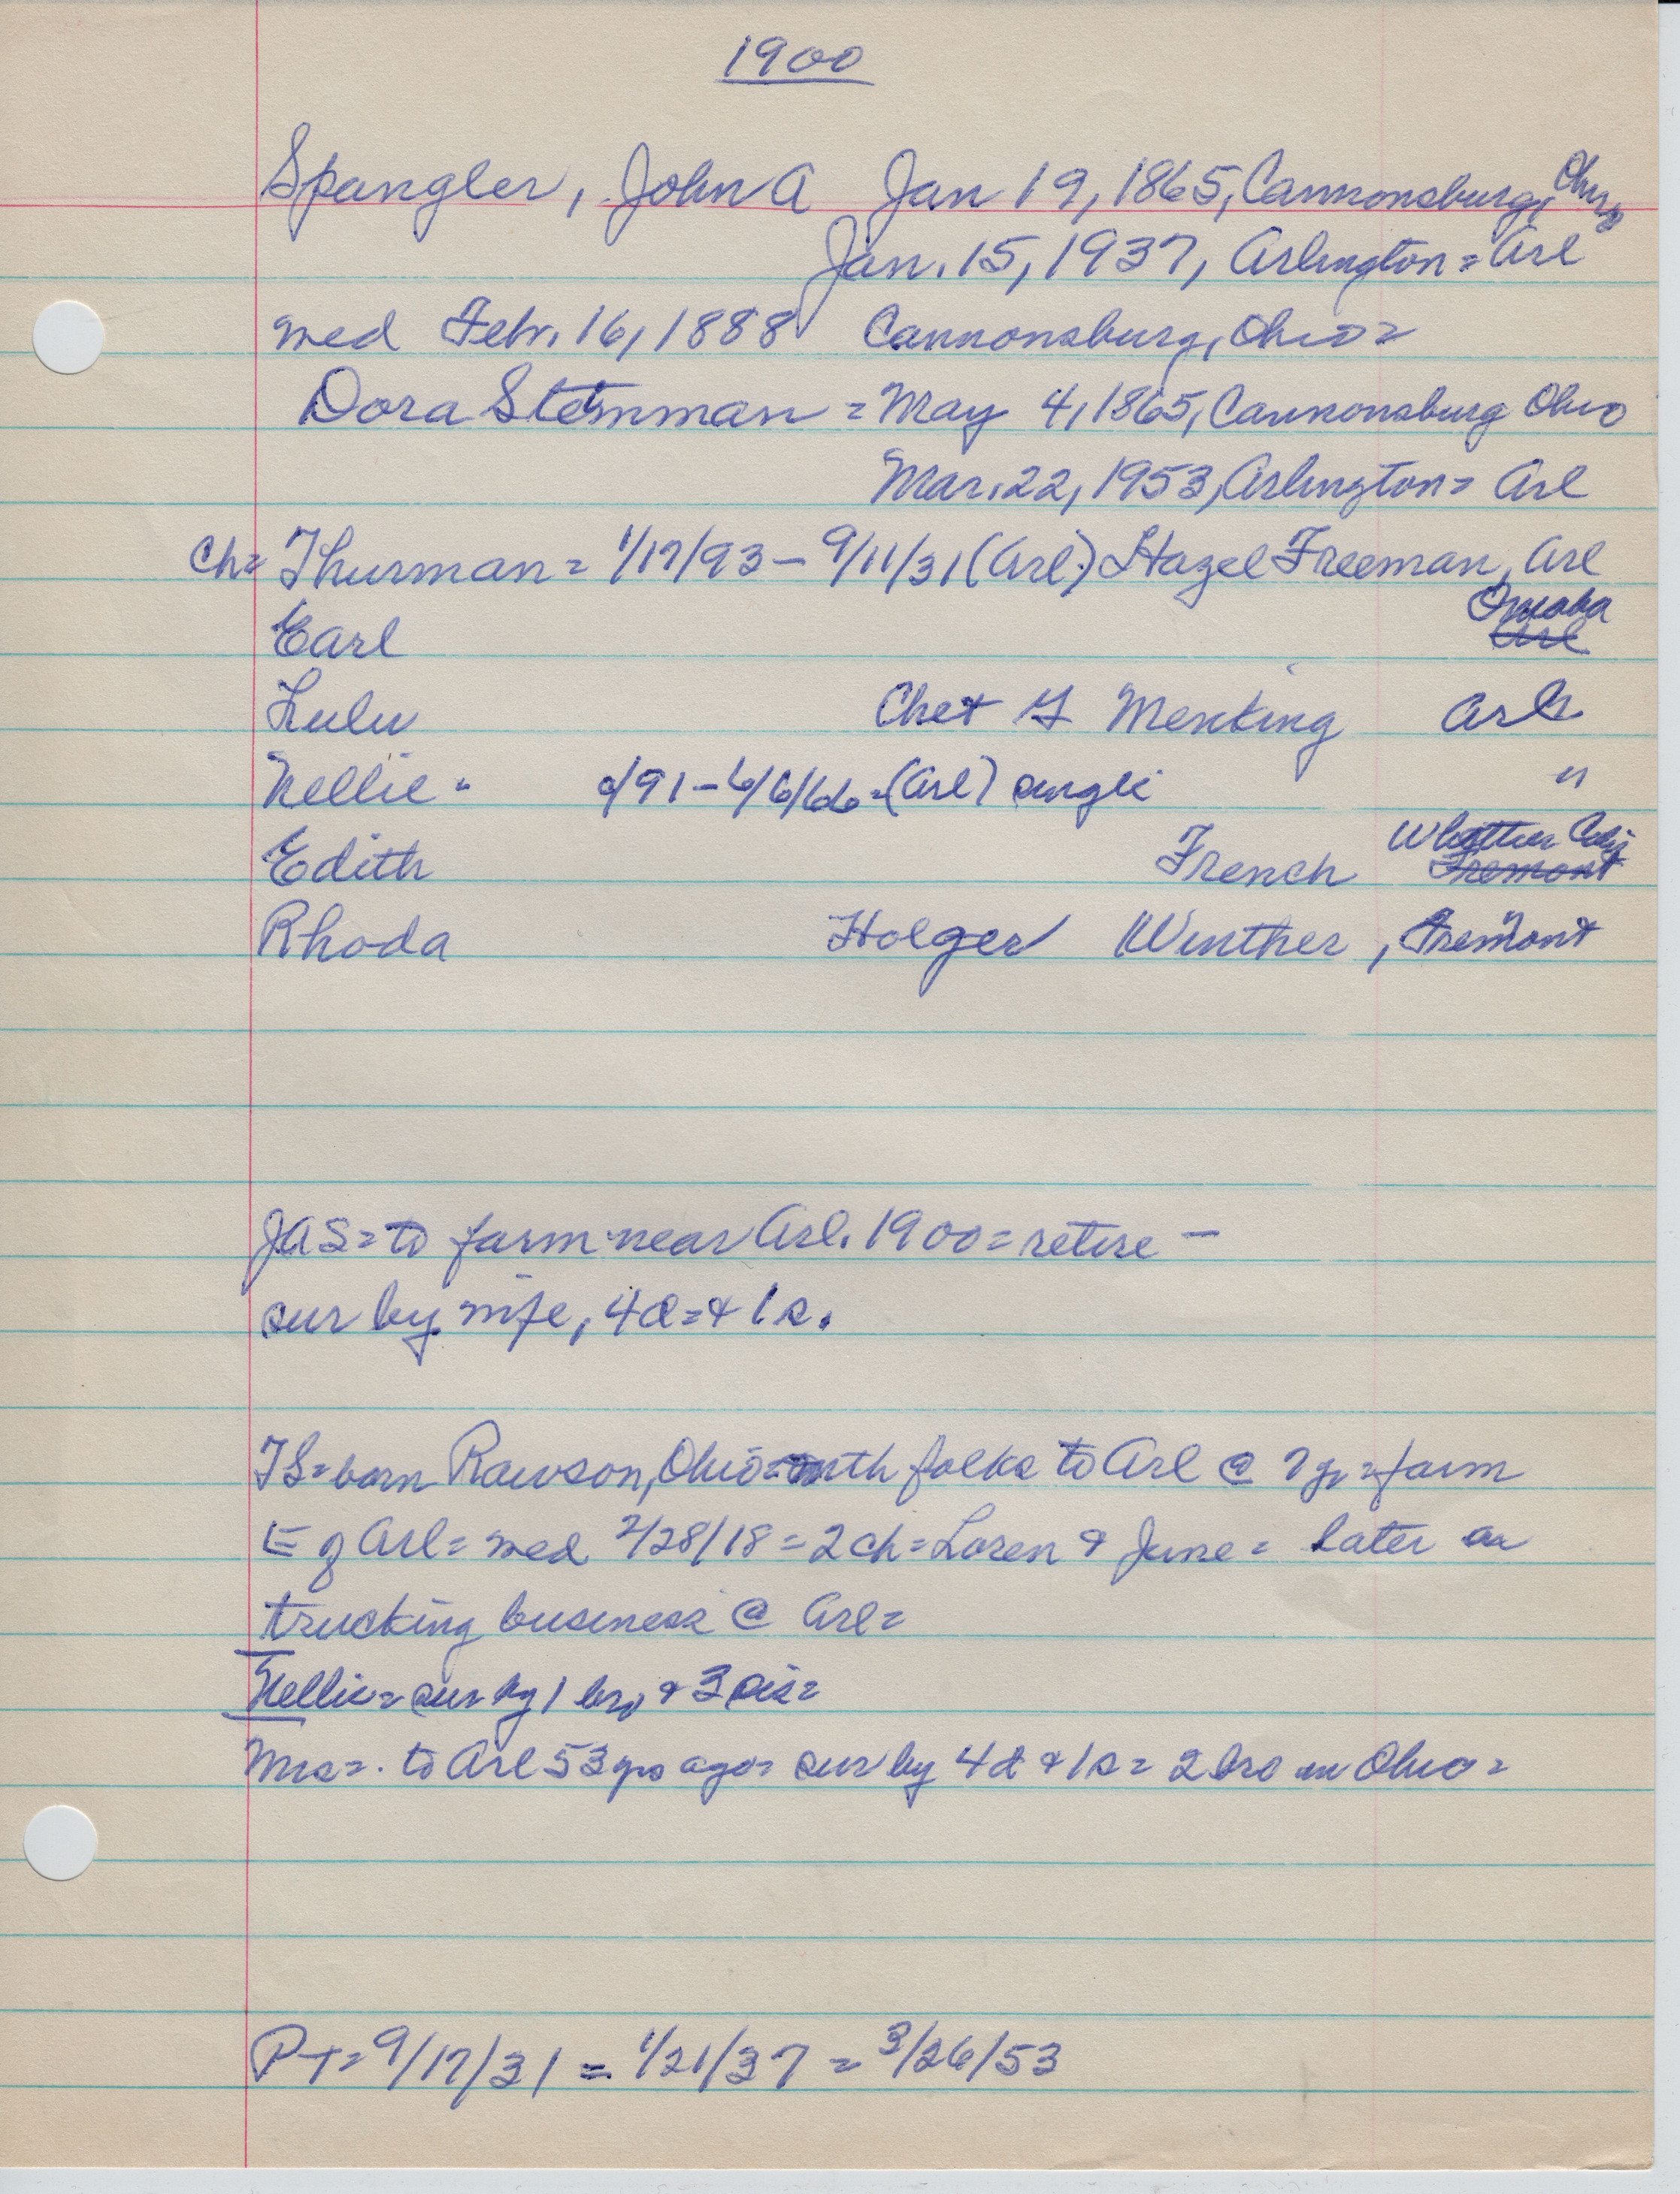 1900
Spangler, John A Jan 19, 1865, Cannonsburg, Ohio
Jan. 15, 1937, Arlington = Arl
med Febr. 16, 1888 Cannonsburg, Ohio =
Dora Stemman = May 4, 1865, Cannonsburg Ohio
Mar. 22, 1953, Arlington = Arl
Ch = Thurman = 1/17/93 - 9/11/31 (Arl.) Hazel Freeman, Arl
Earl Omaha Arl
Lulu Chet G Menking Arl
Nellie = /91 - 6/6/66 = (Arl) single "
Edith French Whittier Calif Fremont
Rhoda Holger Winther, Fremont
JAS = to farm near Arl. 1900 = retire -
sur by wife, 4 d = & 1 s.
TS = born Rawson, Ohio = with folks to Arl @ 7 yr = farm
E of Arl = med 2/28/18 = 2 ch = Loren & June = later in
trucking business @ Arl =
Nellie = sur by 1 bro & 3 sis =
Mrs =. to Arl 53 yrs ago = sur by 4 d & 1 s = 2 bro in Ohio =
PT = 9/17/31 = 1/21/37 = 3/26/53